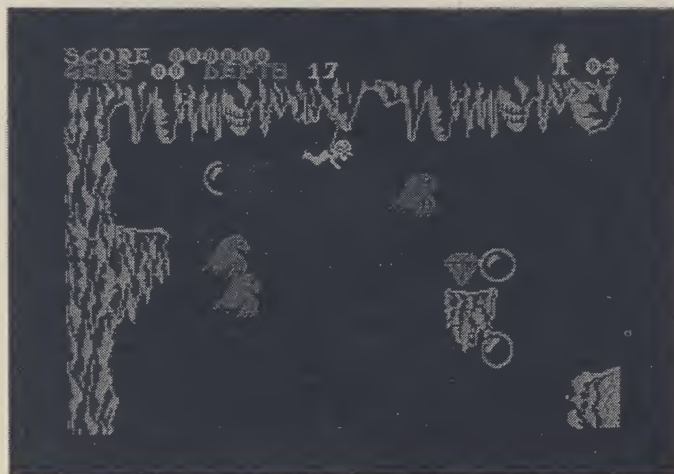 SCORE 000000
GEMS 00 DEPTH 17 04